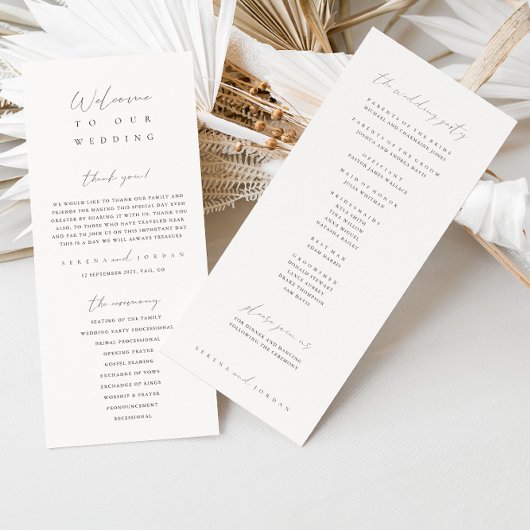 Welcome
TO OUR
WEDDING
thank you!
WE WOULD LIKE TO THANK OUR FAMILY AND
FRIENDS FOR MAKING THIS SPECIAL DAY EVEN
GREATER BY SHARING IT WITH US. THANK YOU
ALSO, TO THOSE WHO HAVE TRAVELED NEAR
AND FAR TO JOIN US ON THIS IMPORTANT DAY.
THIS IS A DAY WE WILL ALWAYS TREASURE.
SERENA and JORDAN
12 SEPTEMBER 2025, VAIL, CO
the ceremony
SEATING OF THE FAMILY
WEDDING PARTY PROCESSIONAL
BRIDAL PROCESSIONAL
OPENING PRAYER
GOSPEL READING
EXCHANGE OF VOWS
EXCHANGE OF RINGS
WORSHIP & PRAYER
PRONOUNCEMENT
RECESSIONAL
the wedding party
PARENTS OF THE BRIDE
MICHAEL AND CHARMAINE JOHNS
PARENTS OF THE GROOM
JOSHUA AND ANDREA DAVID
OFFICIANT
PASTOR JAMES WALLACE
MAID OF HONOR
JULIA WHITMAN
BRIDESMAIDS
KYLE SMITH
TINA WILSON
EVE WILLOW
NATASHA BAILEY
BEST MAN
ADAM HARRIS
GROOMSMEN
DONALD STEWART
LANCE AUBREY
DRAKE THOMPSON
SAM DAVIS
please join us
FOR DINNER AND DANCING
FOLLOWING THE CEREMONY
SERENA and JORDAN